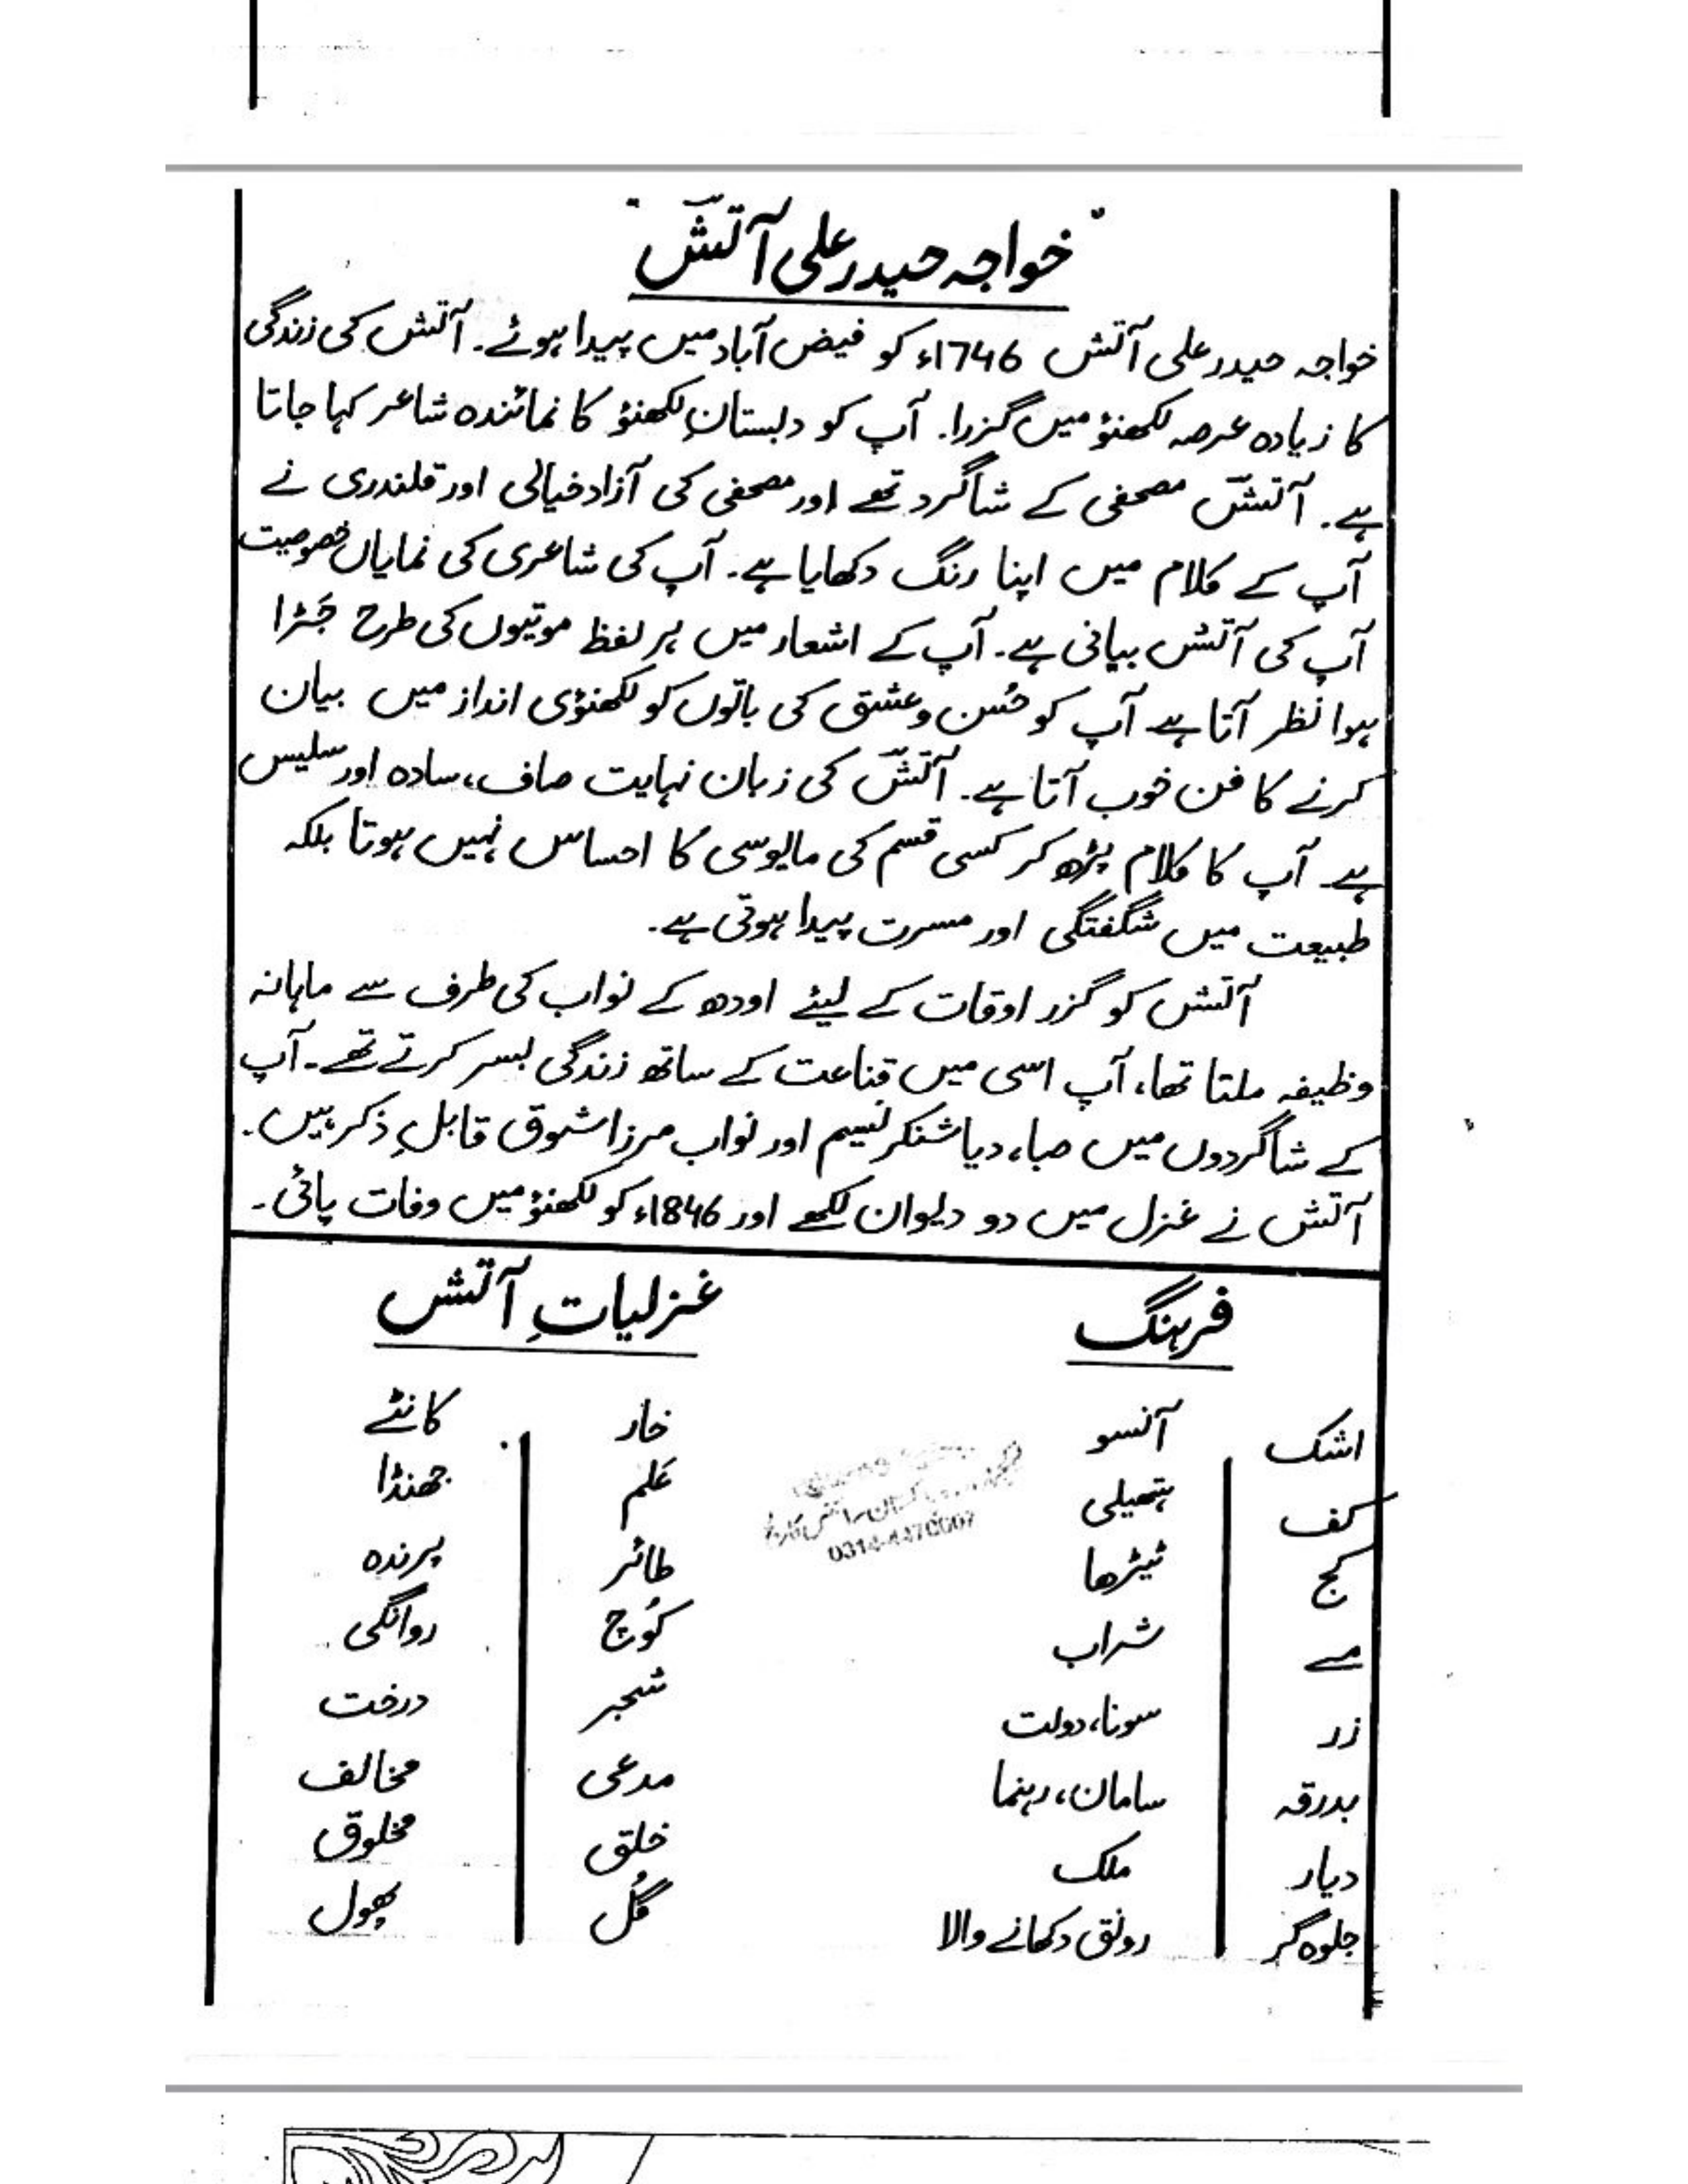 "خواجہ حیدر علی آتش"
خواجہ حیدر علی آتش 1746ء کو فیض آباد میں پیدا ہوئے۔ آتش کی زندگی
کا زیادہ عرصہ لکھنؤ میں گزرا۔ آپ کو دبستانِ لکھنؤ کا نمائندہ شاعر کہا جاتا
ہے۔ آتش مصحفی کے شاگرد تھے اور مصحفی کی آزاد خیالی اور قلندری نے
آپ کے کلام میں اپنا رنگ دکھایا ہے۔ آپ کی شاعری کی نمایاں خصوصیت
آپ کی آتش بیانی ہے۔ آپ کے اشعار میں ہر لفظ موتیوں کی طرح جَڑا
ہوا نظر آتا ہے آپ کو حُسن و عشق کی باتوں کو لکھنؤی انداز میں بیان
کرنے کا فن خوب آتا ہے۔ آتش کی زبان نہایت صاف، سادہ اور سلیس
ہے آپ کا کلام پڑھ کر کسی قسم کی مایوسی کا احساس نہیں ہوتا بلکہ
طبیعت میں شگفتگی اور مسرت پیدا ہوتی ہے۔
آتش کو گزر اوقات کے لیئے اودھ کے نواب کی طرف سے ماہانہ
وظیفہ ملتا تھا، آپ اسی میں قناعت کے ساتھ زندگی بسر کرتے تھے۔ آپ
کے شاگردوں میں صبا، دیا شنکر نسیم اور نواب مرزا شوق قابلِ ذکر ہیں۔
آتش نے غزل میں دو دیوان لکھے اور 1846ء کو لکھنؤ میں وفات پائی۔
فرہنگ غزلیاتِ آتش
اشک آنسو خار کانٹے
کف ہتھیلی عَلم جھنڈا
کج ٹیڑھا طائر پرندہ
مے شراب کُوچ روانگی
زر سونا، دولت شجر درخت
بدرقہ سامان، رہنما مدعی مخالف
دیار ملک خلق مخلوق
جلوہ گر رونق دکھانے والا گُل پھول